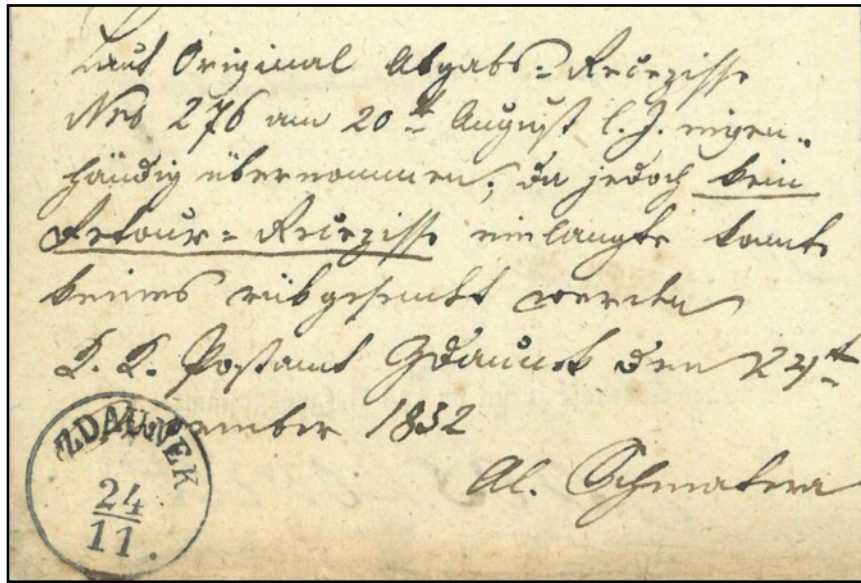 Laut Original Abgabs=Recepisse
Nro 276 am 20t August l. J. eigen=
händig übernommen; da jedoch kein
Retour=Recepisse einlangte konnte
keines rückgesandt werden
K. K. Postamt Zdaunek den 24t
November 1852
Al. Schmatera
ZDAUNEK
24
11